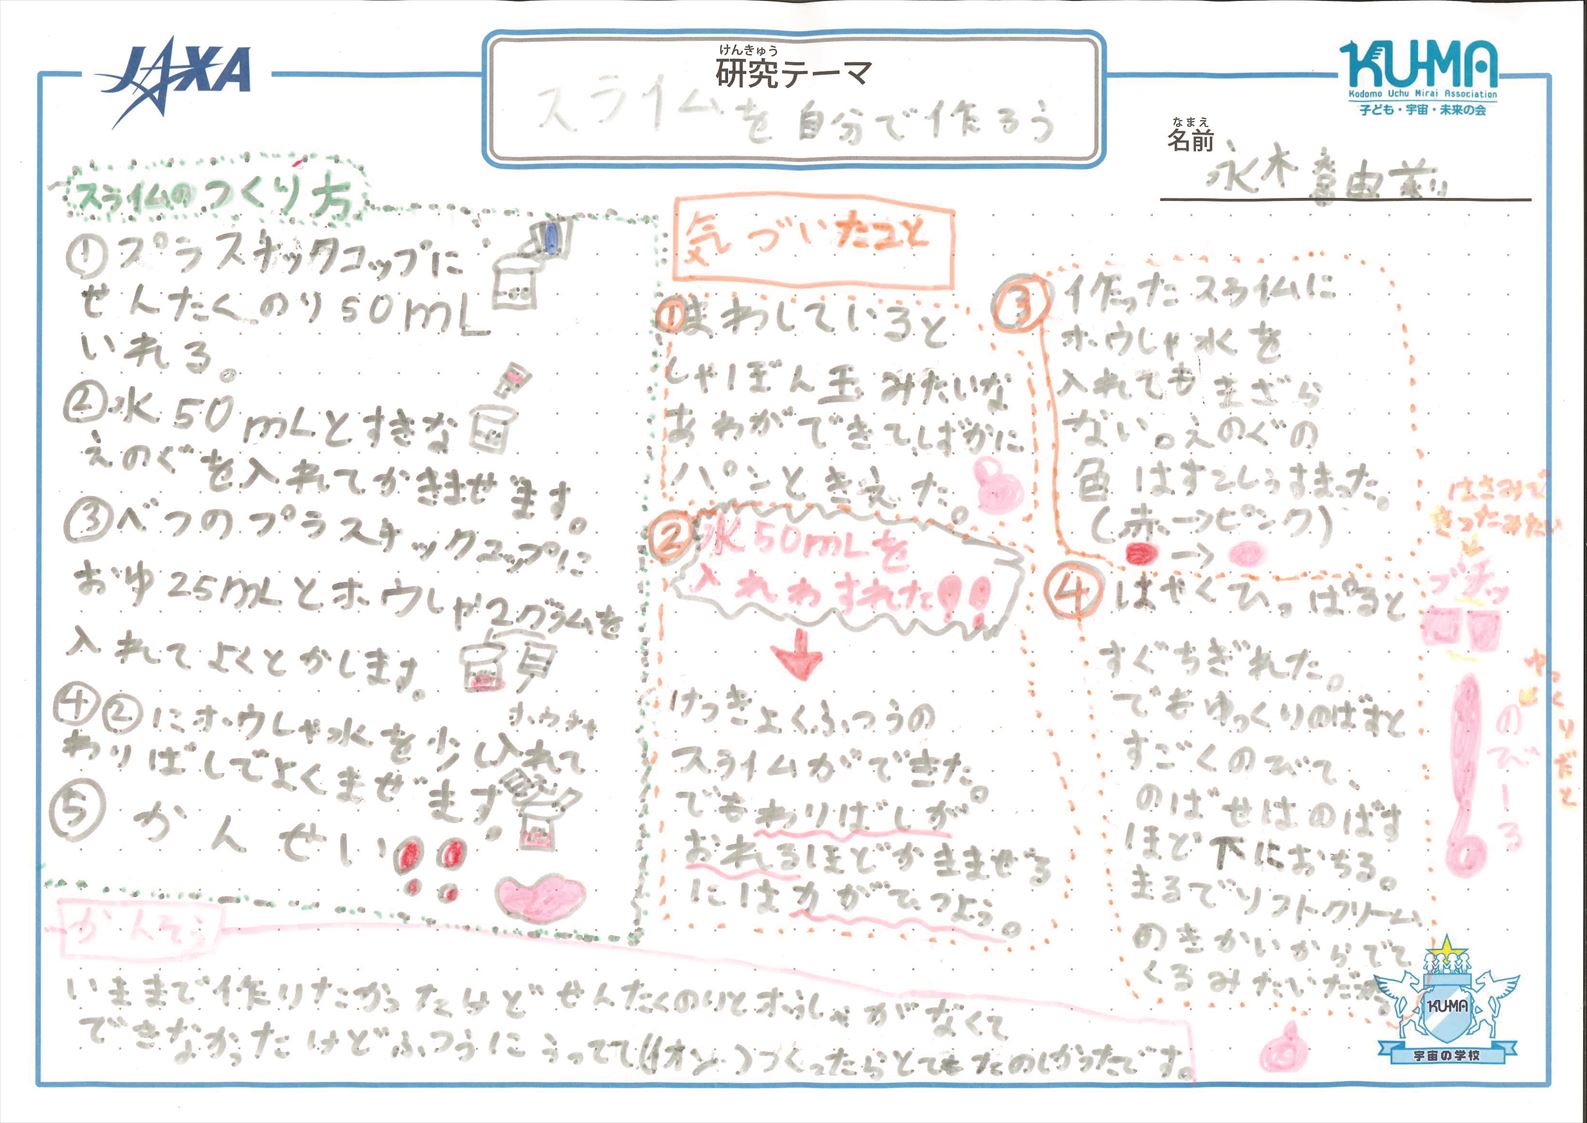 JAXA
けんきゅう
研究テーマ
スライムを自分で作ろう
KUMA
Kodomo Uchu Mirai Association
子ども・宇宙・未来の会
なまえ
名前
永木
スライムのつくり方
①プラスチックコップに
せんたくのり50mL
いれる。
②水50mLとすきな
えのぐを入れてかきまぜます。
③べつのプラスチックコップに
おゆ25mLとホウしゃ2グラムを
入れてよくとかします。
④②にホウしゃ水を少し入れて
わりばしでよくまぜます。
⑤かんせい!!
気づいたこと
①まわしていると
しゃぼん玉みたいな
あわができて、しばかに
パンときえた。
②水50mLを
入れわすれた!!
けっきょくふつうの
スライムができた。
でもわりばしが
おれるほどかきまぜる
には力がひつよう。
③作ったスライムに
ホウしゃ水を
入れてもまざら
ない。えのぐの
色はすこしうすまった。
(赤→ピンク)
→
④はやくひっぱると
すぐちぎれた。
でもゆっくりのばすと
すごくのびて、
のばせはのばす
ほど下におちる。
まるでソフトクリーム
のきかいからでて
くるみたいだった。
はさみで
きったみたい
ブチッ
ゆっくりだと
のびーる
かんそう
いままで作りたかったけどせんたくのりとホウしゃがなくて
できなかったけどふつうにうってて(イオン)つくったらとてもたのしかったです。
KUMA
宇宙の学校